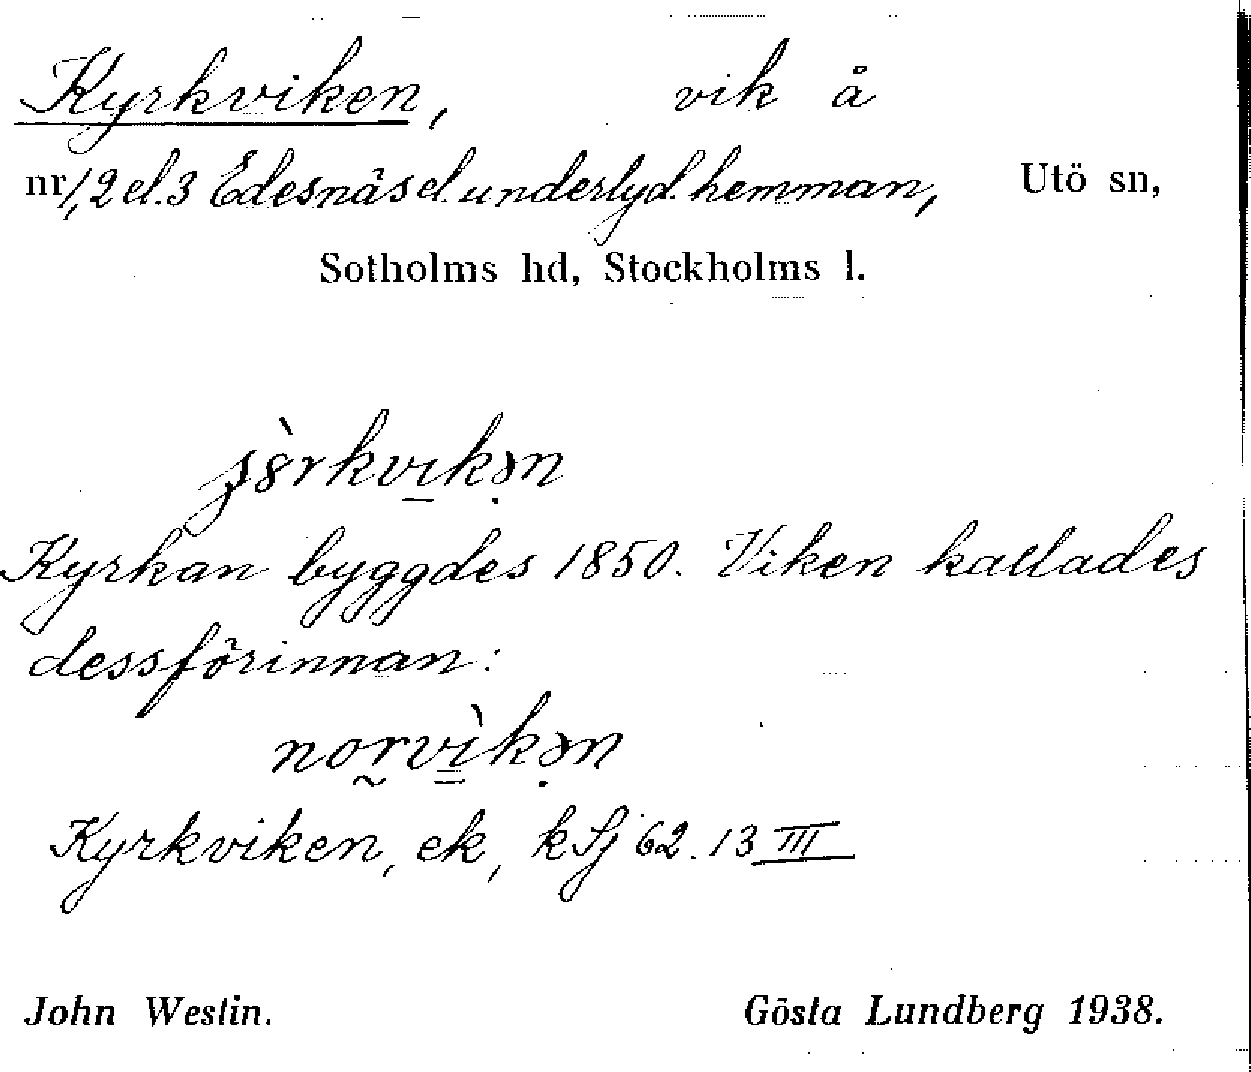 Kyrkviken, vik å
nr 1, 2 el. 3 Edesnäs el. underlyd. hemman, Utö sn,
Sotholms hd, Stockholms l.
Kyrkan byggdes 1850. Viken kallades
dessförinnan:
norvìkən
Kyrkviken, ek, k Sj 62. 13 III
John Westin. Gösta Lundberg 1938.